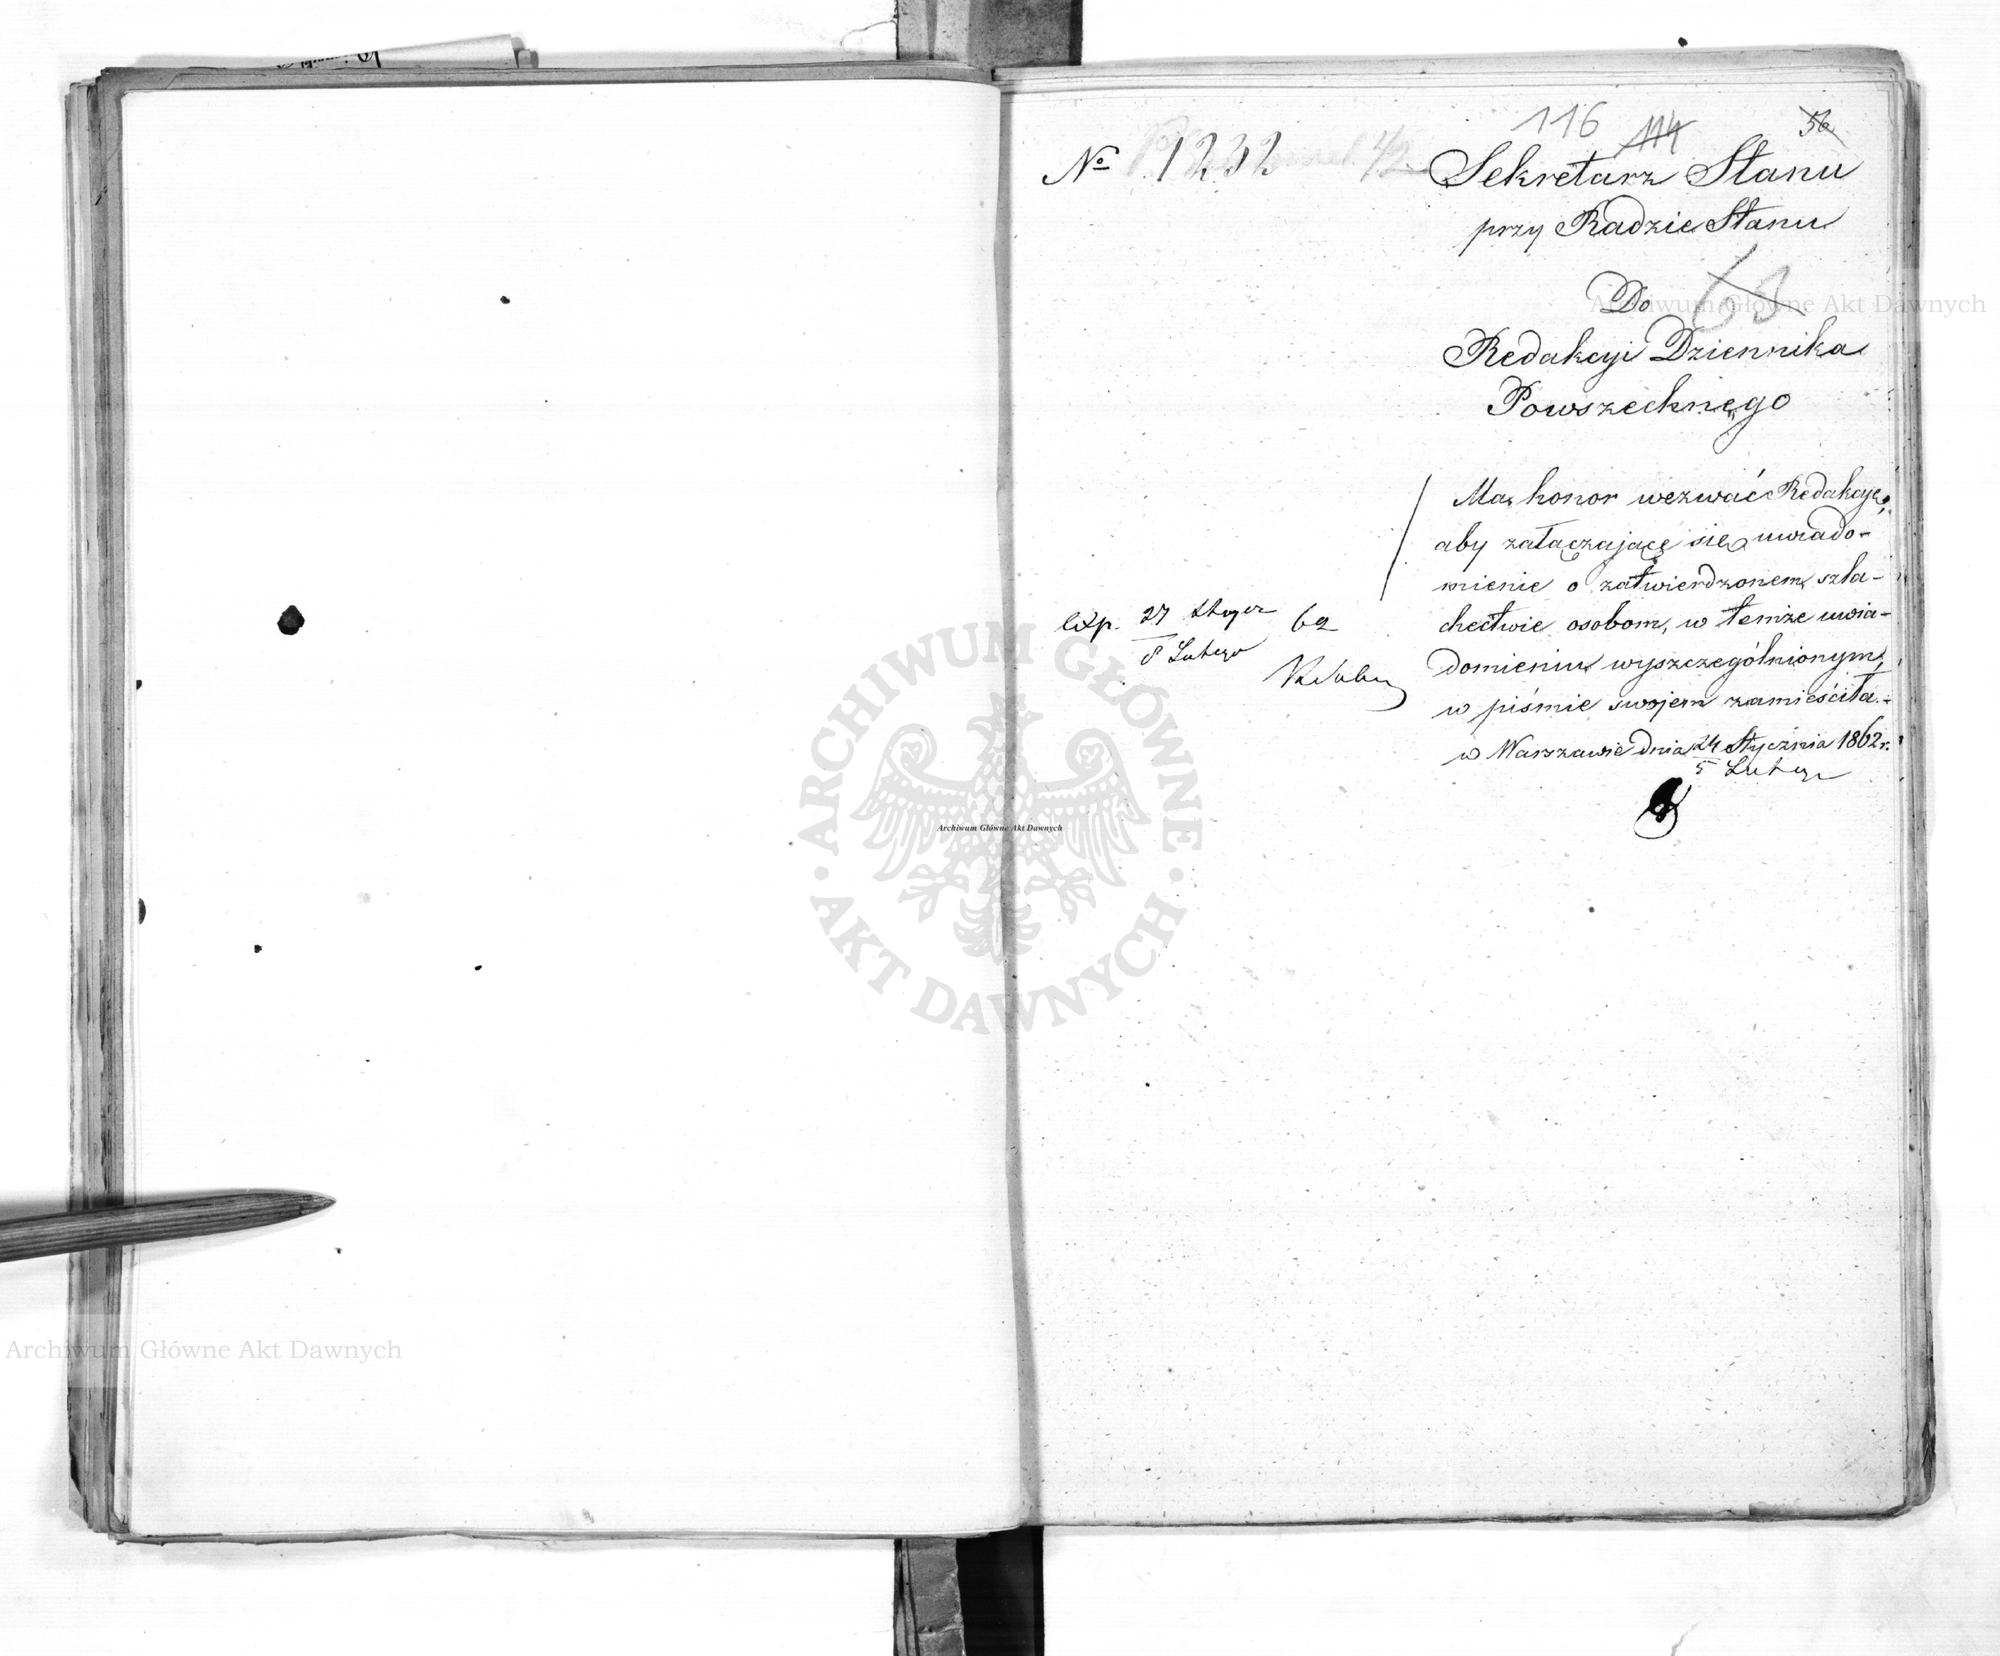 116 114 56
№ 1232
Sekretarz Stanu
przy Radzie Stanu
Do
63
Redakcyi Dziennika
Powszechnego
Ma honor wezwać Redakcyę,
aby załączające się uwiado-
mienie o zatwierdzonem szla-
chectwie osobom, w temże uwia-
domieniu wyszczególnionym,
w piśmie swojem zamieściła.-
w Warszawie dnia 24 Stycznia 1862 r.
5 Lutego
Exp. 27 Stycz 62
8 Lutego
Archiwum Główne Akt Dawnych
ARCHIWUM GŁÓWNE
AKT DAWNYCH
Archiwum Główne Akt Dawnych
Archiwum Główne Akt Dawnych